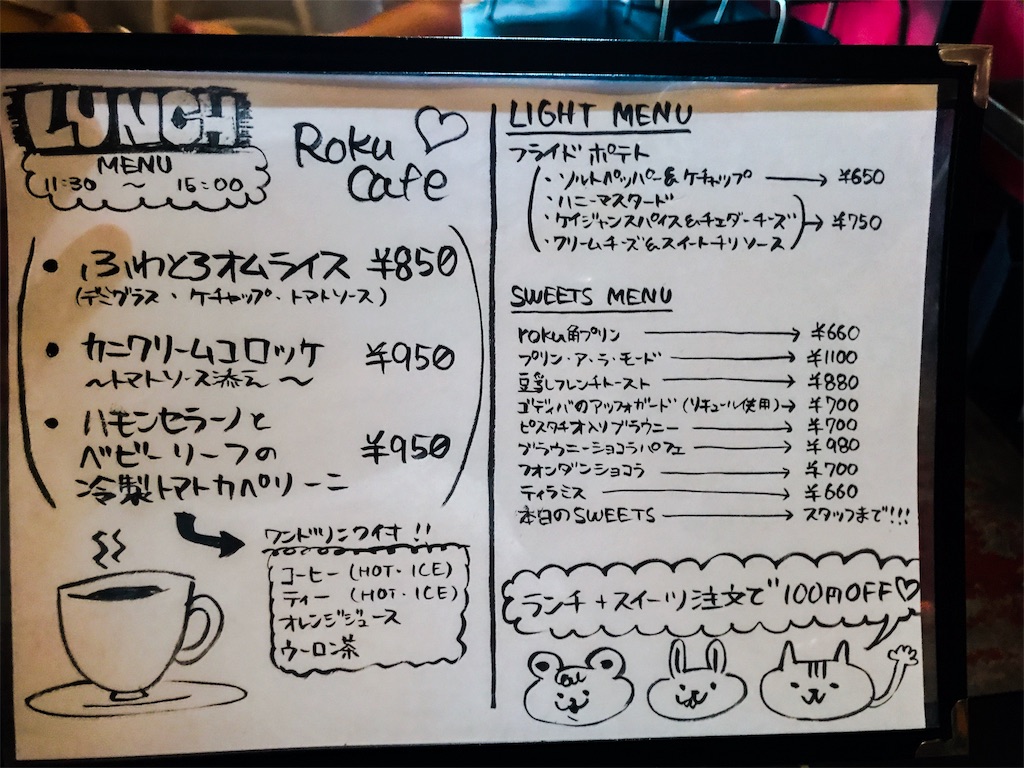 LUNCH
MENU
11:30 ~ 15:00
Roku
Cafe
・ふわとろオムライス ¥850
(デミグラス・ケチャップ・トマトソース)
・カニクリームコロッケ ¥950
~トマトソース添え~
・ハモンセラーノと
ベビーリーフの ¥950
冷製トマトカペリーニ
ワンドリンクイオ!!
コーヒー (HOT・ICE)
ティー (HOT・ICE)
オレンジジュース
ウーロン茶
LIGHT MENU
フライドポテト
・ソルトペッパー&ケチャップ → ¥650
・ハニーマスタード
・ケイジャンスパイス&チェダーチーズ → ¥750
・クリームチーズ&スイートチリソース
SWEETS MENU
roku角プリン → ¥660
プリン・ア・ラ・モード → ¥1100
豆乳フレンチトースト → ¥880
ゴディバのアッフォガード (リキュール使用) → ¥700
ピスタチオ入りブラウニー → ¥700
ブラウニーショコラパフェ → ¥980
フォンダンショコラ → ¥700
ティラミス → ¥660
本日のSWEETS → スタッフまで!!!
ランチ+スイーツ注文で100円OFF♡